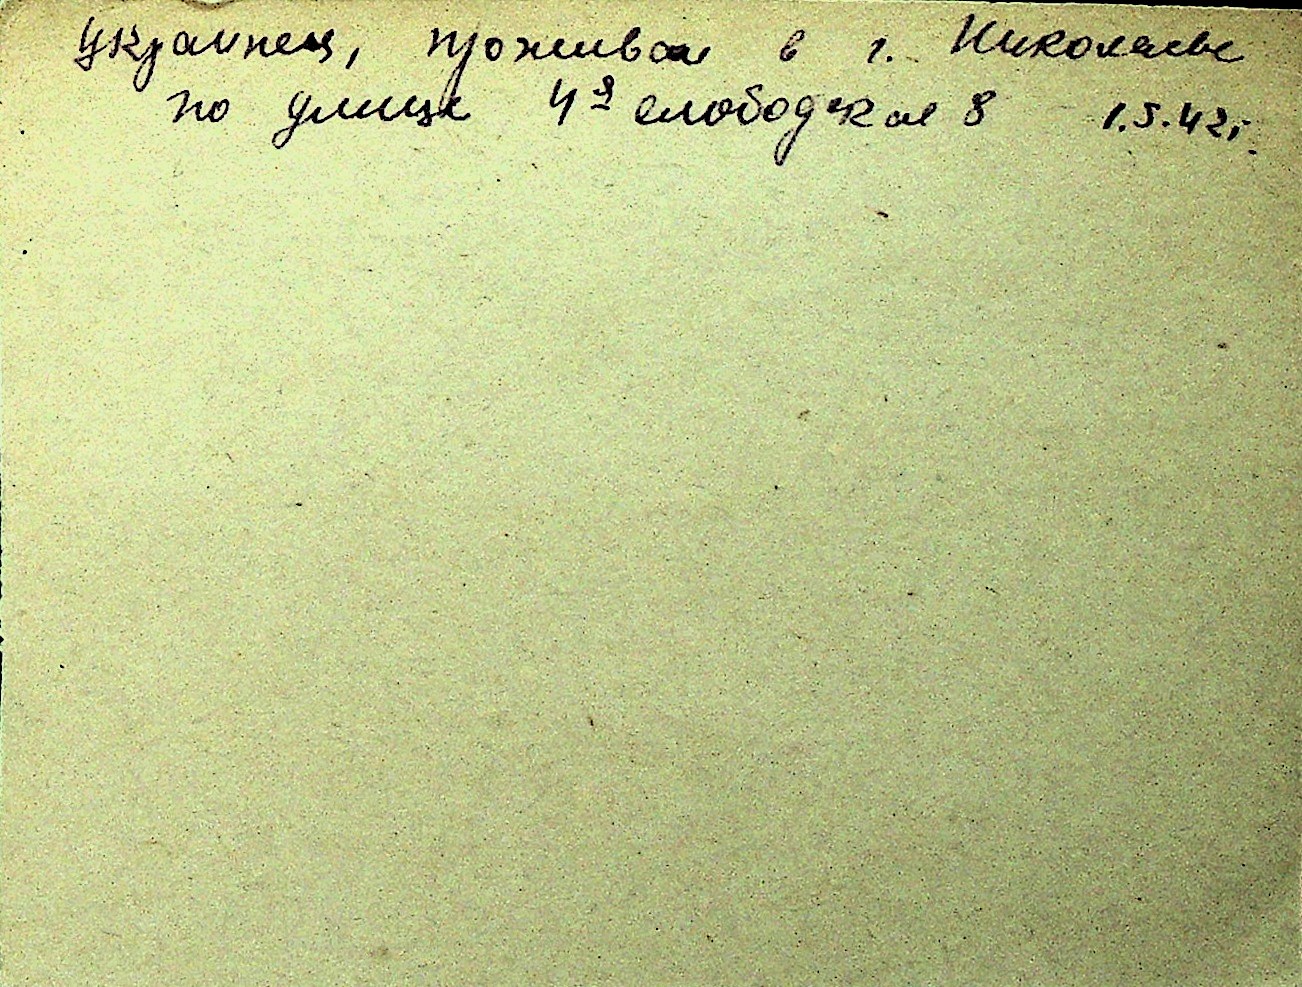 украинец, проживал в г. Николаеве
по улице 4я слободская 8 1.5.42г.